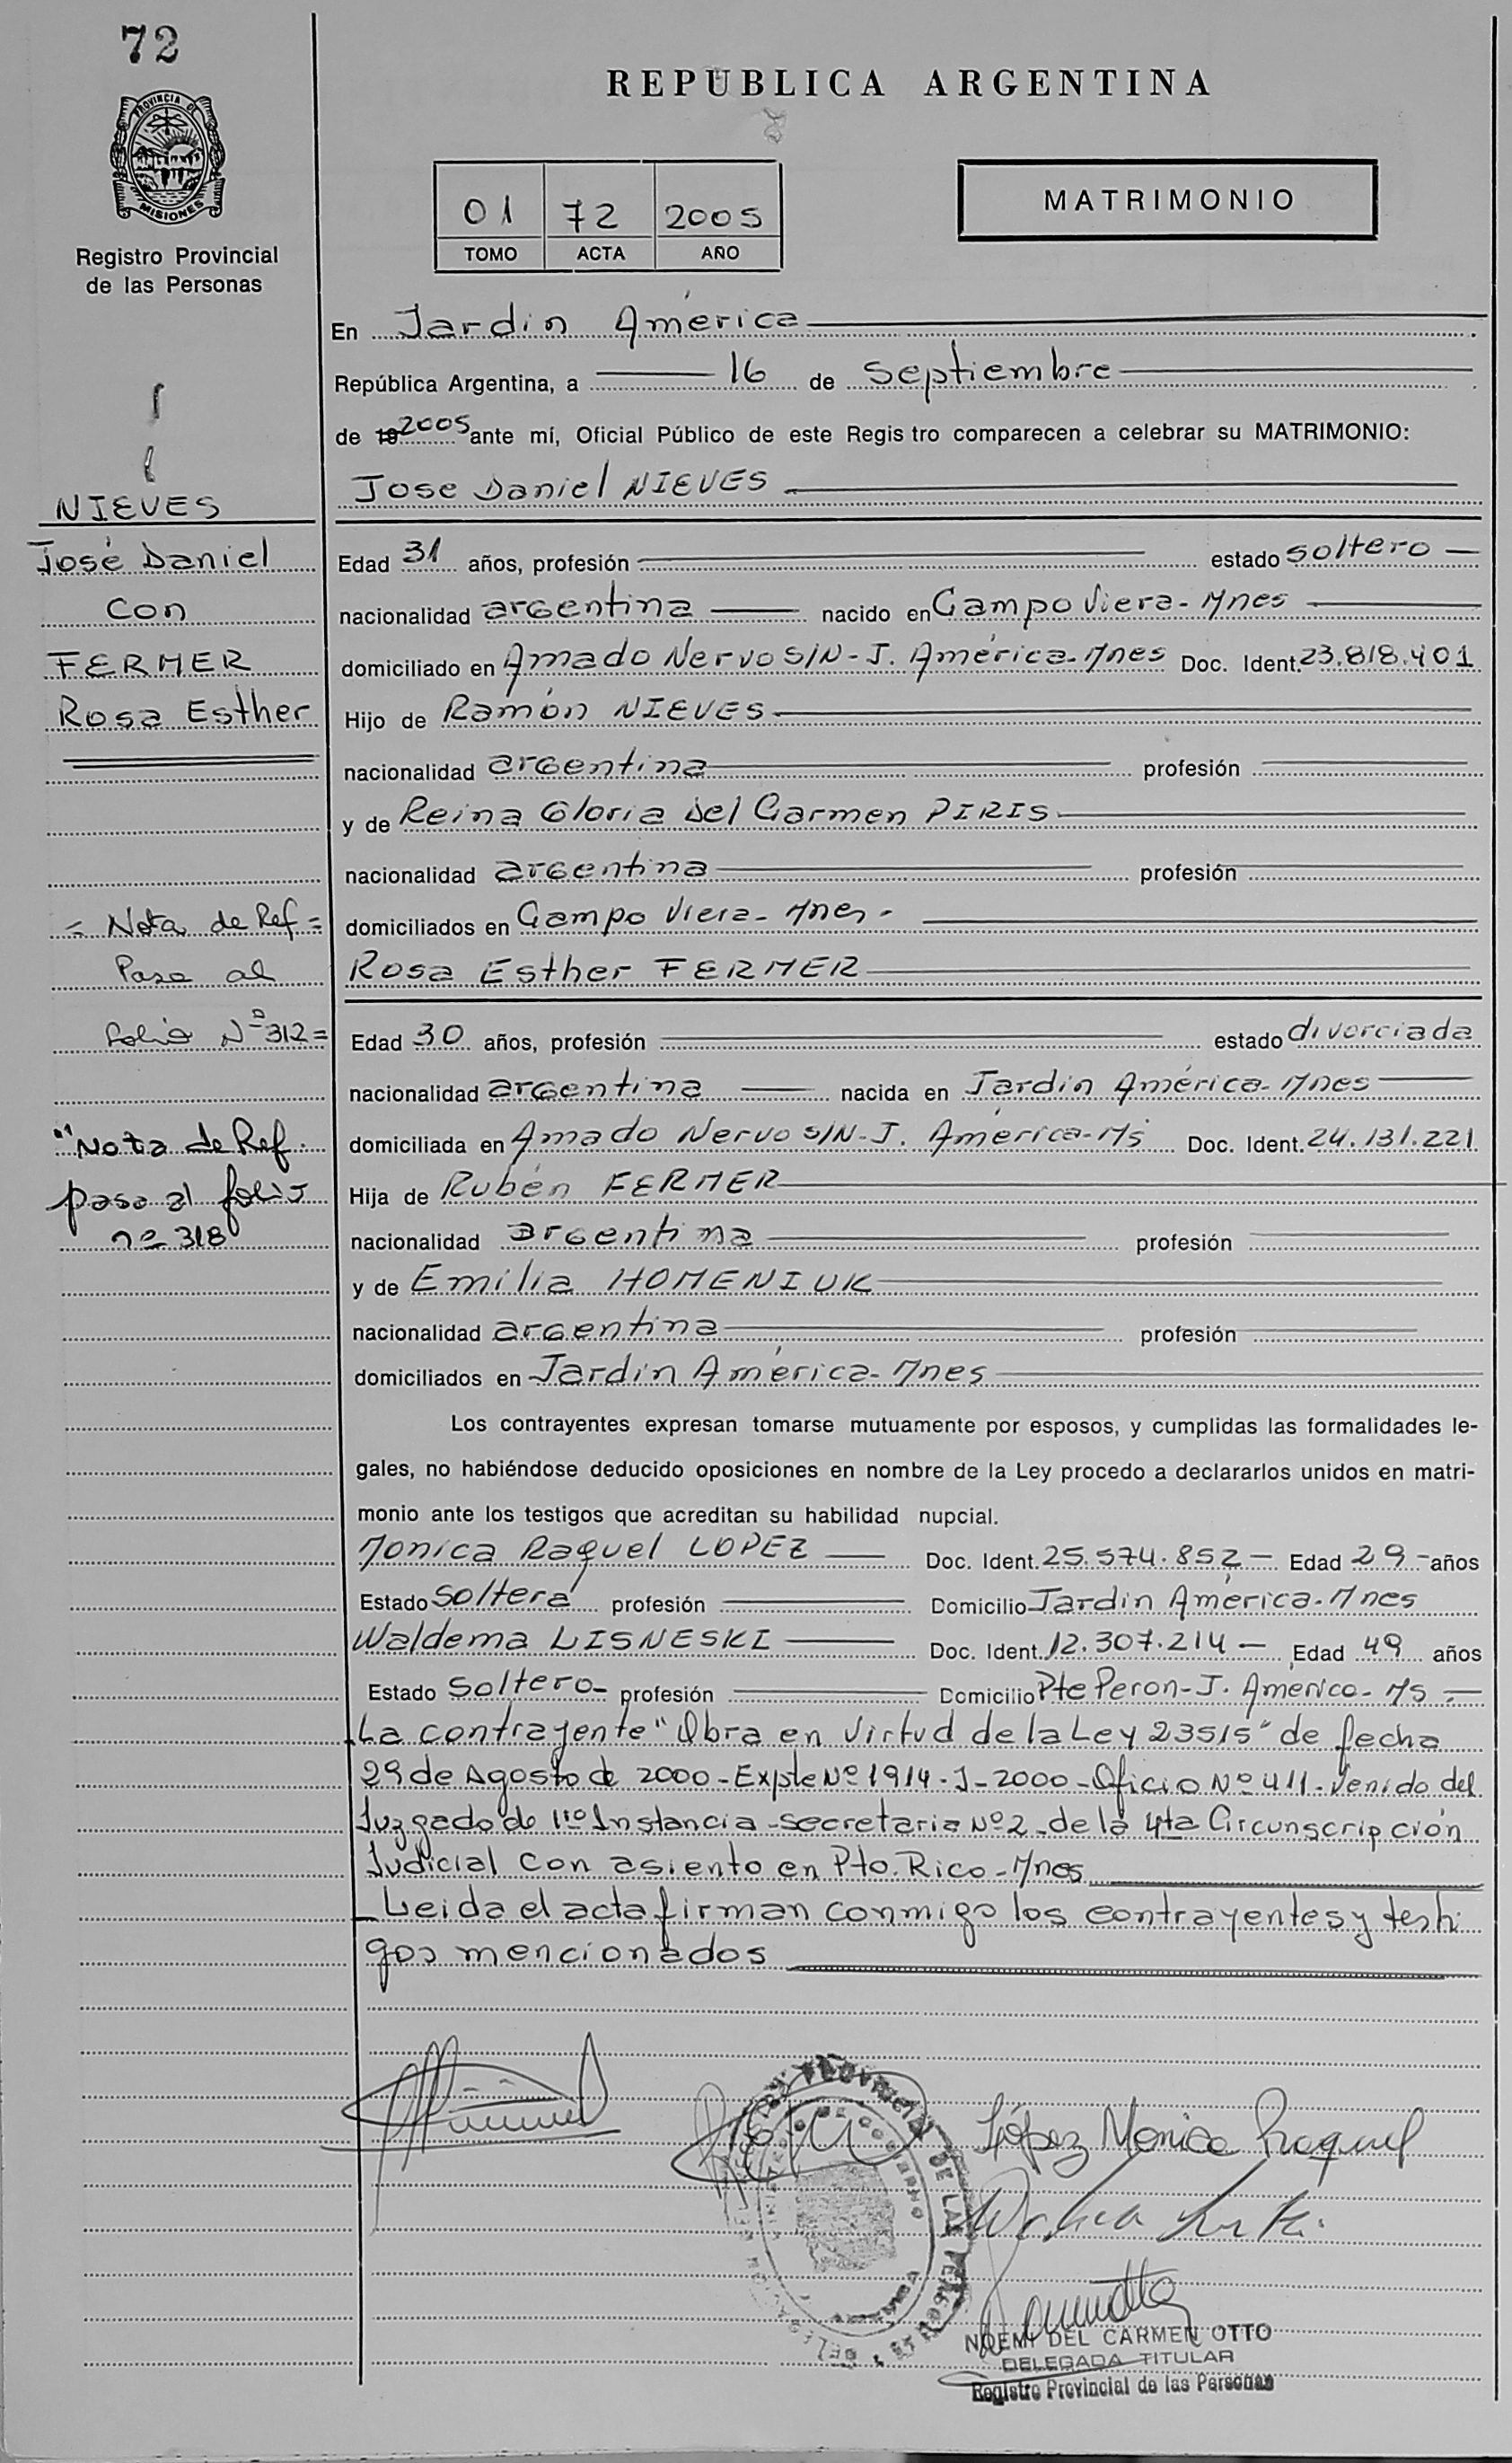 72
REPUBLICA ARGENTINA
PROVINCIA DE
MISIONES
Registro Provincial
de las Personas
01 72 2005
TOMO ACTA AÑO
MATRIMONIO
En Jardin América
República Argentina, a 16 de Septiembre
de 19 2005 ante mí, Oficial Público de este Regis tro comparecen a celebrar su MATRIMONIO:
Jose Daniel NIEVES
NIEVES
José Daniel
Con
FERMER
Rosa Esther
Edad 31 años, profesión estado soltero
nacionalidad argentina nacido en Campo Viera-Mnes
domiciliado en Amado Nervo S/N-J. América-Mnes Doc. Ident. 23.818.401
Hijo de Ramón NIEVES
nacionalidad argentina profesión
y de Reina Gloria del Carmen PIRIS
nacionalidad argentina profesión
domiciliados en Campo Viera-Mnes-
Rosa Esther FERMER
= Nota de Ref =
Pasa al
folio Nº 312=
"Nota de Ref.
pasa al folio
nº 318
Edad 30 años, profesión estado divorciada
nacionalidad argentina nacida en Jardín América-Mnes
domiciliada en Amado Nervo S/N-J. América-Ms Doc. Ident. 24.131.221
Hija de Rubén FERMER
nacionalidad argentina profesión
y de Emilia HOMENIUK
nacionalidad argentina profesión
domiciliados en Jardin América-Mnes
Los contrayentes expresan tomarse mutuamente por esposos, y cumplidas las formalidades le-
gales, no habiéndose deducido oposiciones en nombre de la Ley procedo a declararlos unidos en matri-
monio ante los testigos que acreditan su habilidad nupcial.
Monica Raquel LOPEZ Doc. Ident. 25.574.852- Edad 29-años
Estado Soltera profesión Domicilio Jardin América-Mnes
Waldema LISNESKI Doc. Ident. 12.307.214- Edad 49 años
Estado Soltero- profesión Domicilio Pte Peron-J. America-Ms-
La contrayente "Obra en Virtud de la Ley 23515" de fecha
29 de Agosto de 2000-Expte Nº 1914-J-2000-Oficio Nº 411-Venido del
Juzgado de 1ra Instancia-Secretaria Nº 2-de la 4ta Circunscripción
Judicial con asiento en Pto. Rico-Mnes
Leida el acta firman conmigo los contrayentes y testi
gos mencionados
López Monica Raquel
PROVINCIAL DE LAS PERSONAS
NOEMI DEL CARMEN OTTO
DELEGADA TITULAR
Registro Provincial de las Personas